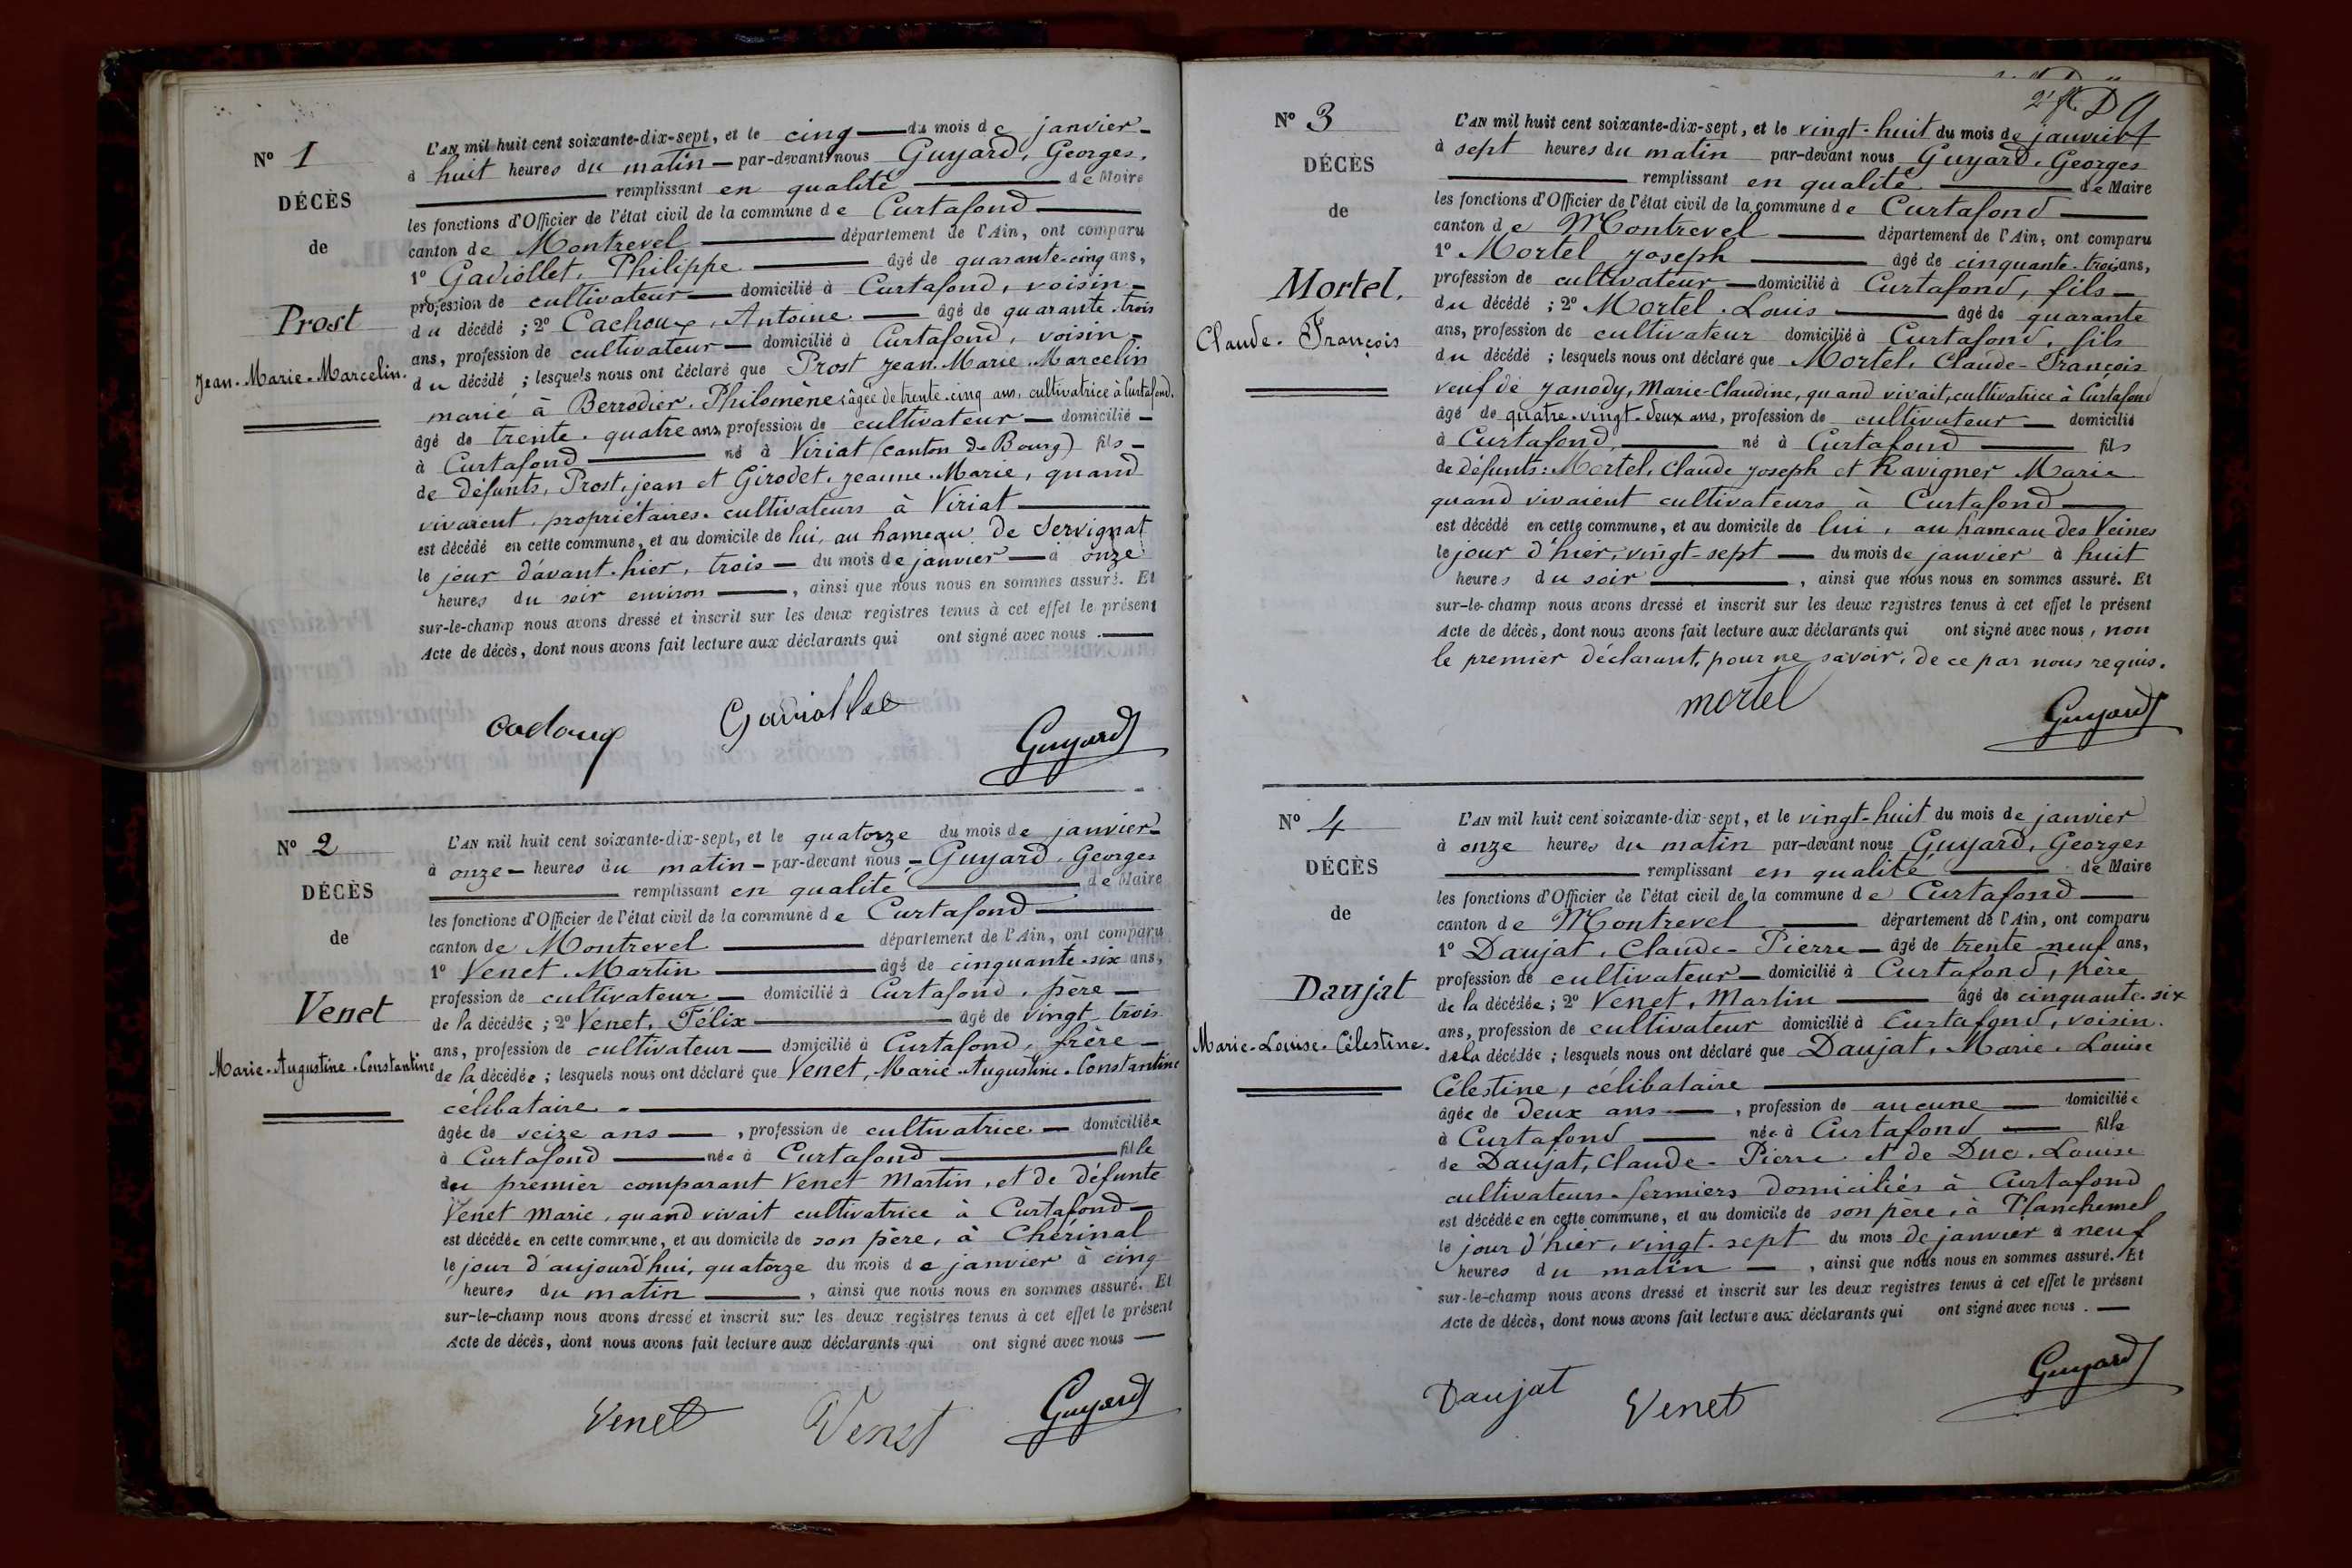 N° 1
DÉCÈS
de
Prost
Jean-Marie-Marcelin.
L'AN mil huit cent soixante-dix-sept, et le cinq — du mois de janvier —
à huit heures du matin — par-devant nous Guyard, Georges,
— remplissant en qualité — de Maire
les fonctions d'Officier de l'état civil de la commune de Curtafond —
canton de Montrevel — département de l'Ain, ont comparu
1° Gaviollet, Philippe — âgé de quarante-cinq ans,
profession de cultivateur — domicilié à Curtafond, voisin —
du décédé ; 2° Cachoux, Antoine — âgé de quarante-trois
ans, profession de cultivateur — domicilié à Curtafond, voisin —
du décédé ; lesquels nous ont déclaré que Prost Jean-Marie-Marcelin
marié à Berrodier, Philomène, âgée de trente-cinq ans, cultivatrice à Curtafond,
âgé de trente-quatre ans, profession de cultivateur — domicilié —
à Curtafond — né à Viriat (canton de Bourg) fils —
de défunts, Prost, jean et Girodet, jeanne-Marie, quand
vivaient, propriétaires-cultivateurs à Viriat —
est décédé en cette commune, et au domicile de lui, au hameau de Servignat
le jour d'avant-hier, trois — du mois de janvier — à onze
heures du soir environ —, ainsi que nous nous en sommes assuré. Et
sur-le-champ nous avons dressé et inscrit sur les deux registres tenus à cet effet le présent
Acte de décès, dont nous avons fait lecture aux déclarants qui ont signé avec nous . —
Gaviollet
Guyard
N° 2
DÉCÈS
de
Venet
Marie-Augustine-Constantine
L'AN mil huit cent soixante-dix-sept, et le quatorze du mois de janvier —
à onze — heures du matin — par-devant nous — Guyard, Georges
— remplissant en qualité — de Maire
les fonctions d'Officier de l'état civil de la commune de Curtafond —
canton de Montrevel — département de l'Ain, ont comparu
1° Venet, Martin — âgé de cinquante-six ans,
profession de cultivateur — domicilié à Curtafond, père —
de la décédée ; 2° Venet, Félix — âgé de vingt-trois
ans, profession de cultivateur — domicilié à Curtafond, frère —
de la décédée ; lesquels nous ont déclaré que Venet, Marie-Augustine-Constantine
célibataire —
âgée de seize ans —, profession de cultivatrice — domiciliée
à Curtafond — née à Curtafond — fille
du premier comparant Venet Martin, et de défunte
Venet Marie, quand vivait cultivatrice à Curtafond —
est décédée en cette commune, et au domicile de son père, à Chérinal
le jour d'aujourd'hui, quatorze du mois de janvier à cinq
heures du matin —, ainsi que nous nous en sommes assuré. Et
sur-le-champ nous avons dressé et inscrit sur les deux registres tenus à cet effet le présent
Acte de décès, dont nous avons fait lecture aux déclarants qui ont signé avec nous —
Venet Venet Guyard
N° 3
DÉCÈS
de
Mortel,
Claude-François
L'AN mil huit cent soixante-dix-sept, et le vingt-huit du mois de janvier
à sept heures du matin par-devant nous Guyard, Georges
— remplissant en qualité — de Maire
les fonctions d'Officier de l'état civil de la commune de Curtafond —
canton de Montrevel — département de l'Ain, ont comparu
1° Mortel Joseph — âgé de cinquante-trois ans,
profession de cultivateur — domicilié à Curtafond, fils —
du décédé ; 2° Mortel, Louis — âgé de quarante
ans, profession de cultivateur domicilié à Curtafond, fils
du décédé ; lesquels nous ont déclaré que Mortel, Claude-François
veuf de Janody, Marie-Claudine, quand vivait, cultivatrice à Curtafond
âgé de quatre-vingt-deux ans, profession de cultivateur — domicilié
à Curtafond, — né à Curtafond — fils
de défunts: Mortel, Claude Joseph et Ravigner Marie
quand vivaient cultivateurs à Curtafond —
est décédé en cette commune, et au domicile de lui, au hameau des Veines
le jour d'hier, vingt-sept — du mois de janvier à huit
heures du soir —, ainsi que nous nous en sommes assuré. Et
sur-le-champ nous avons dressé et inscrit sur les deux registres tenus à cet effet le présent
Acte de décès, dont nous avons fait lecture aux déclarants qui ont signé avec nous, non
le premier déclarant, pour ne savoir, de ce par nous requis.
mortel
Guyard
N° 4
DÉCÈS
de
Daujat
Marie-Louise-Célestine.
L'AN mil huit cent soixante-dix-sept, et le vingt-huit du mois de janvier
à onze heures du matin par-devant nous Guyard, Georges
— remplissant en qualité — de Maire
les fonctions d'Officier de l'état civil de la commune de Curtafond —
canton de Montrevel — département de l'Ain, ont comparu
1° Daujat, Claude-Pierre — âgé de trente-neuf ans,
profession de cultivateur — domicilié à Curtafond, père
de la décédée ; 2° Venet, Martin — âgé de cinquante-six
ans, profession de cultivateur domicilié à Curtafond, voisin.
de la décédée ; lesquels nous ont déclaré que Daujat, Marie-Louise
Célestine, célibataire —
âgée de deux ans —, profession de aucune — domiciliée
à Curtafond — née à Curtafond — fille
de Daujat, Claude-Pierre et de Duc, Louise
cultivateurs-fermiers domiciliés à Curtafond
est décédée en cette commune, et au domicile de son père, à Planchemel
le jour d'hier, vingt-sept du mois de janvier à neuf
heures du matin —, ainsi que nous nous en sommes assuré. Et
sur-le-champ nous avons dressé et inscrit sur les deux registres tenus à cet effet le présent
Acte de décès, dont nous avons fait lecture aux déclarants qui ont signé avec nous . —
Daujat Venet Guyard